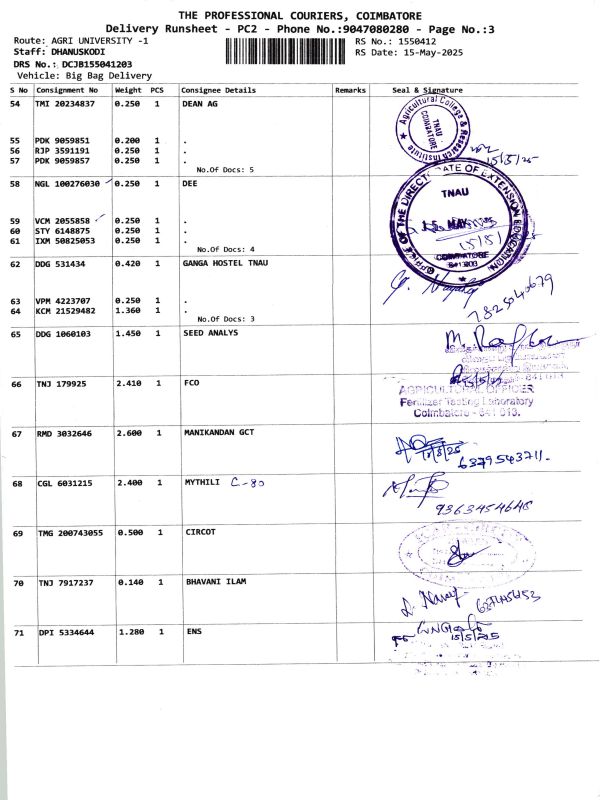 THE PROFESSIONAL COURIERS, COIMBATORE
Delivery Runsheet - PC2 - Phone No.:9047080280 - Page No.:3
Route: AGRI UNIVERSITY -1
RS No.: 1550412
Staff: DHANUSKODI
RS Date: 15-May-2025
DRS No.: DCJB155041203
Vehicle: Big Bag Delivery
S No Consignment No Weight PCS Consignee Details Remarks Seal & Signature
54 TMI 20234837 0.250 1 DEAN AG
Agricultural College & Research Institute
TNAU
COIMBATORE
55 PDK 9059851 0.200 1 .
56 RJP 3591191 0.250 1 .
57 PDK 9059857 0.250 1 .
15/5/25
No.Of Docs: 5
58 NGL 100276030 0.250 1 DEE
OFFICE OF THE DIRECTORATE OF EXTENSION EDUCATION
TNAU
59 VCM 2055858 0.250 1 .
60 STY 6148875 0.250 1 .
61 IXM 50825053 0.250 1 .
MAY
15/5/
No.Of Docs: 4
COIMBATORE
641 003
62 DDG 531434 0.420 1 GANGA HOSTEL TNAU
63 VPM 4223707 0.250 1 .
64 KCM 21529482 1.360 1 .
7825040679
No.Of Docs: 3
65 DDG 1060103 1.450 1 SEED ANALYS
66 TNJ 179925 2.410 1 FCO
15/5/25
AGRICULTURAL OFFICER
Fertilizer Testing Laboratory
Coimbatore - 641 013.
67 RMD 3032646 2.600 1 MANIKANDAN GCT
15/5/25
6379543711.
68 CGL 6031215 2.400 1 MYTHILI C-80
9363454648
69 TMG 200743055 0.500 1 CIRCOT
70 TNJ 7917237 0.140 1 BHAVANI ILAM
71 DPI 5334644 1.280 1 ENS
15/5/2025